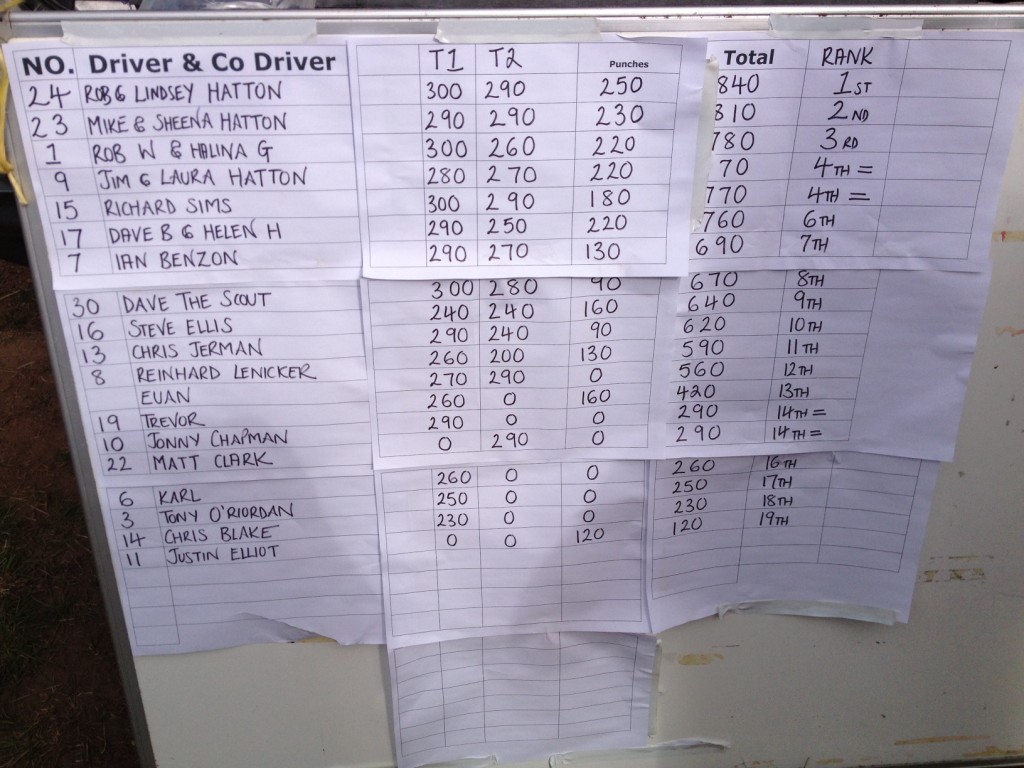 NO. Driver & Co Driver T1 T2 Punches Total RANK
24 ROB & LINDSEY HATTON 300 290 250 840 1ST
23 MIKE & SHEENA HATTON 290 290 230 810 2ND
1 ROB W & HALINA G 300 260 220 780 3RD
9 JIM & LAURA HATTON 280 270 220 70 4TH =
15 RICHARD SIMS 300 290 180 770 4TH =
17 DAVE B & HELEN H 290 250 220 760 6TH
7 IAN BENZON 290 270 130 690 7TH
30 DAVE THE SCOUT 300 280 90 670 8TH
16 STEVE ELLIS 240 240 160 640 9TH
13 CHRIS JERMAN 290 240 90 620 10TH
8 REINHARD LENICKER 260 200 130 590 11TH
EUAN 270 290 0 560 12TH
19 TREVOR 260 0 160 420 13TH
10 JONNY CHAPMAN 290 0 0 290 14TH =
22 MATT CLARK 0 290 0 290 14TH =
6 KARL 260 0 0 260 16TH
3 TONY O'RIORDAN 250 0 0 250 17TH
14 CHRIS BLAKE 230 0 0 230 18TH
11 JUSTIN ELLIOT 0 0 120 120 19TH